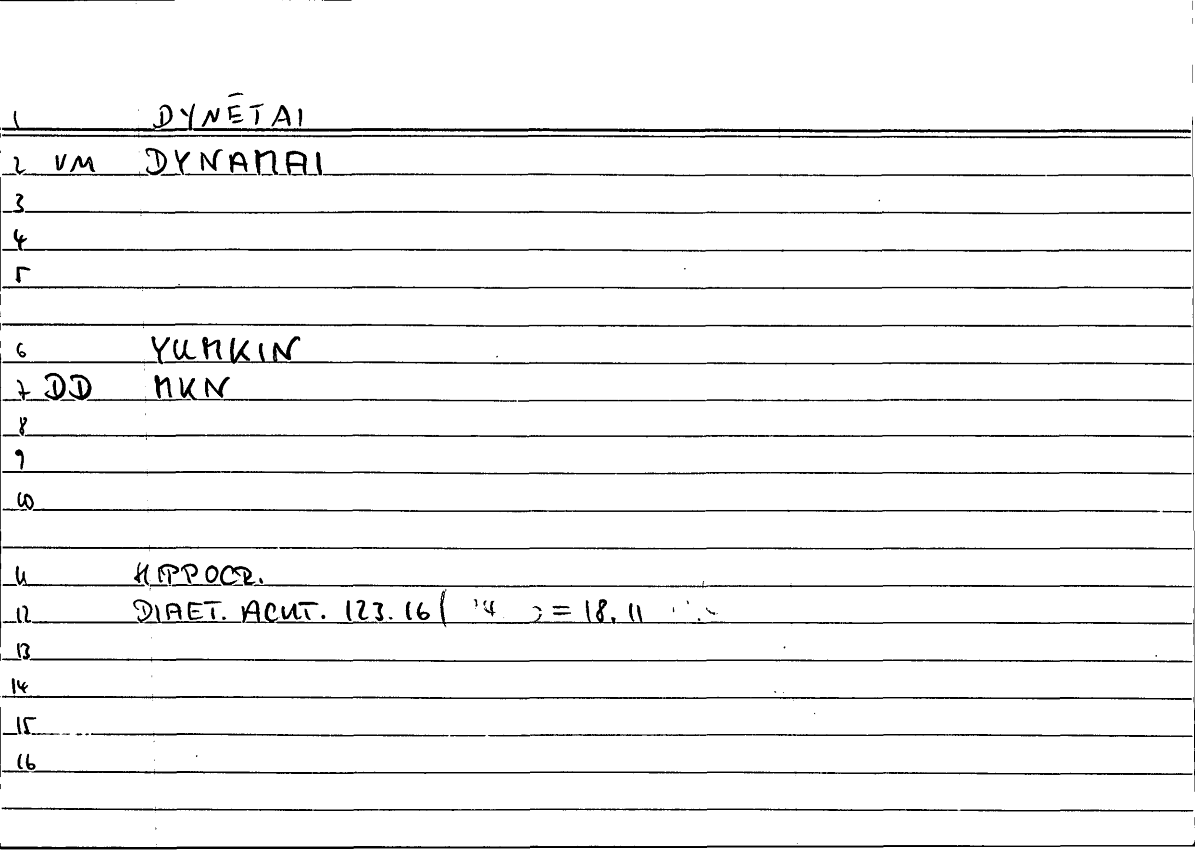 1 DYNĒTAI
2 VM DYNAMAI
3
4
5
6 YUMKIN
7 DD MKN
8
9
10
11 HIPPOCR.
12 DIAET. ACUT. 123.16 ( = 18.11
13
14
15
16